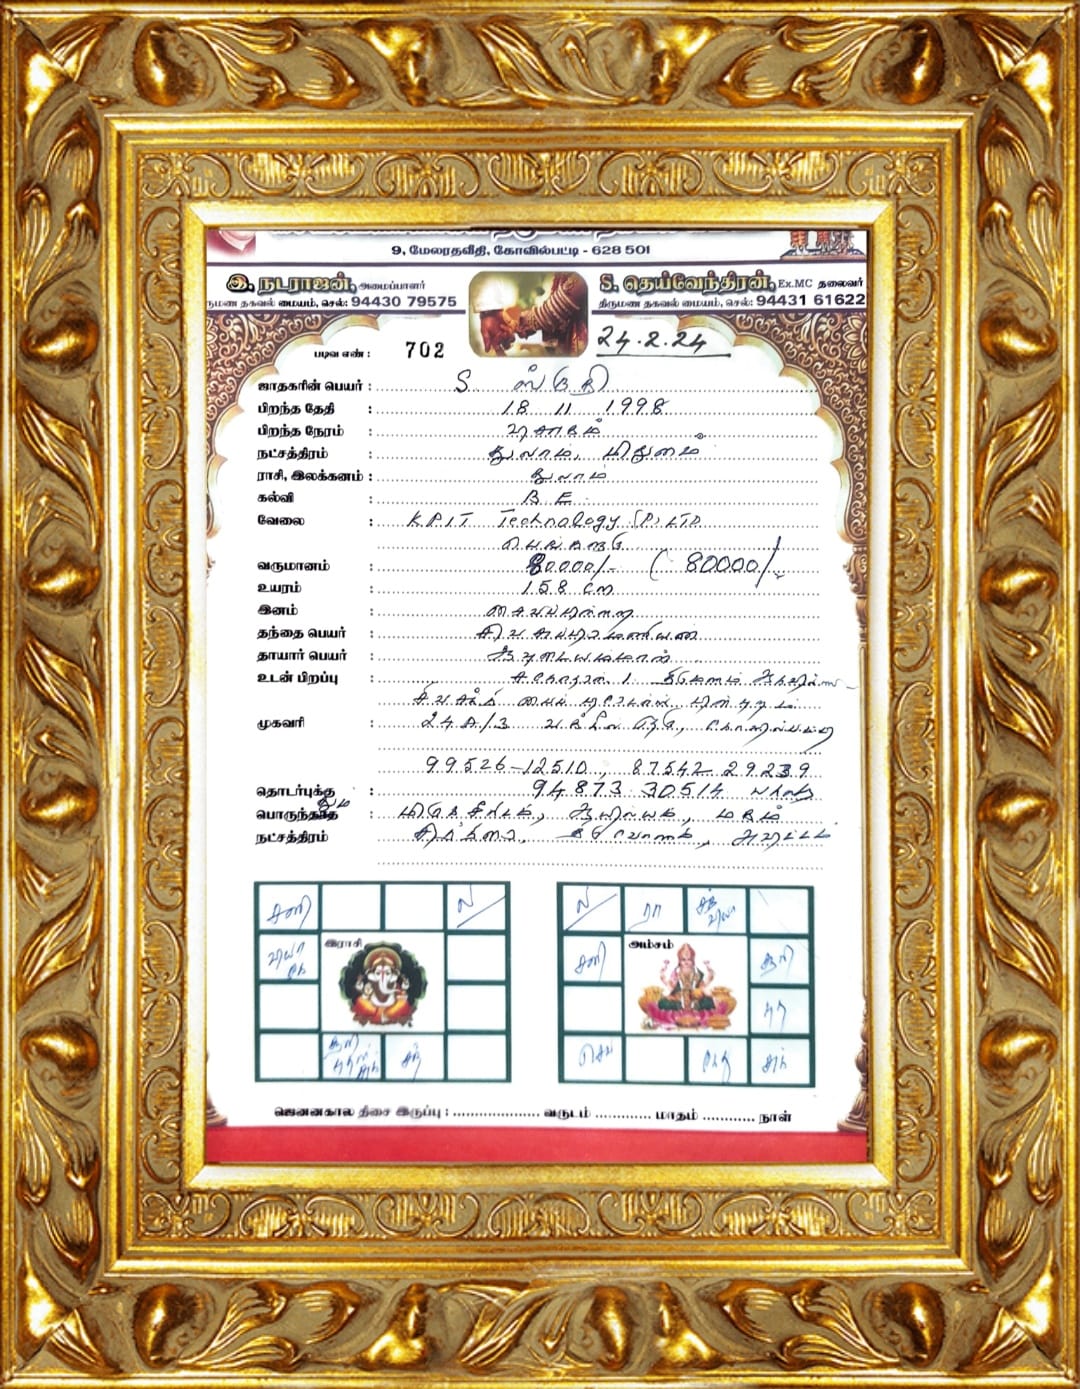 9, மேலரதவீதி, கோவில்பட்டி - 628 501
இ. நடராஜன், அமைப்பாளர்
S. தெய்வேந்திரன், Ex.MC தலைவர்
ருமண தகவல் மையம், செல்: 94430 79575
திருமண தகவல் மையம், செல்: 94431 61622
24.2.24
படிவ எண் : 702
ஜாதகரின் பெயர் : S.
பிறந்த தேதி : 18 11 1998
பிறந்த நேரம் : விசாகம்
நட்சத்திரம் : துலாம், மிதுனம்
ராசி, இலக்கனம் : துலாம்
கல்வி : B E.
வேலை : KPIT Technology (P) LTD
வருமானம் : 80000/- ( 80000/
உயரம் : 158 cm
இனம் : சைவப்பிள்ளை
தந்தை பெயர் : சிவசுப்பிரமணியன்
தாயார் பெயர் :
உடன் பிறப்பு : சகோதரன் 1
முகவரி : 24A/3
99526-12510, 87542 29239
தொடர்புக்கு : 94873 30514
பொருந்தும் : மிருகசீரிடம், ஆயில்யம், மகம்
நட்சத்திரம் : சித்திரை, திருவோணம், அவிட்டம்
சனி ல/
இராசி
ல/ ரா
அம்சம்
சனி சூரி
செவ்
ஜெனனகால திசை இருப்பு : வருடம் மாதம் நாள்